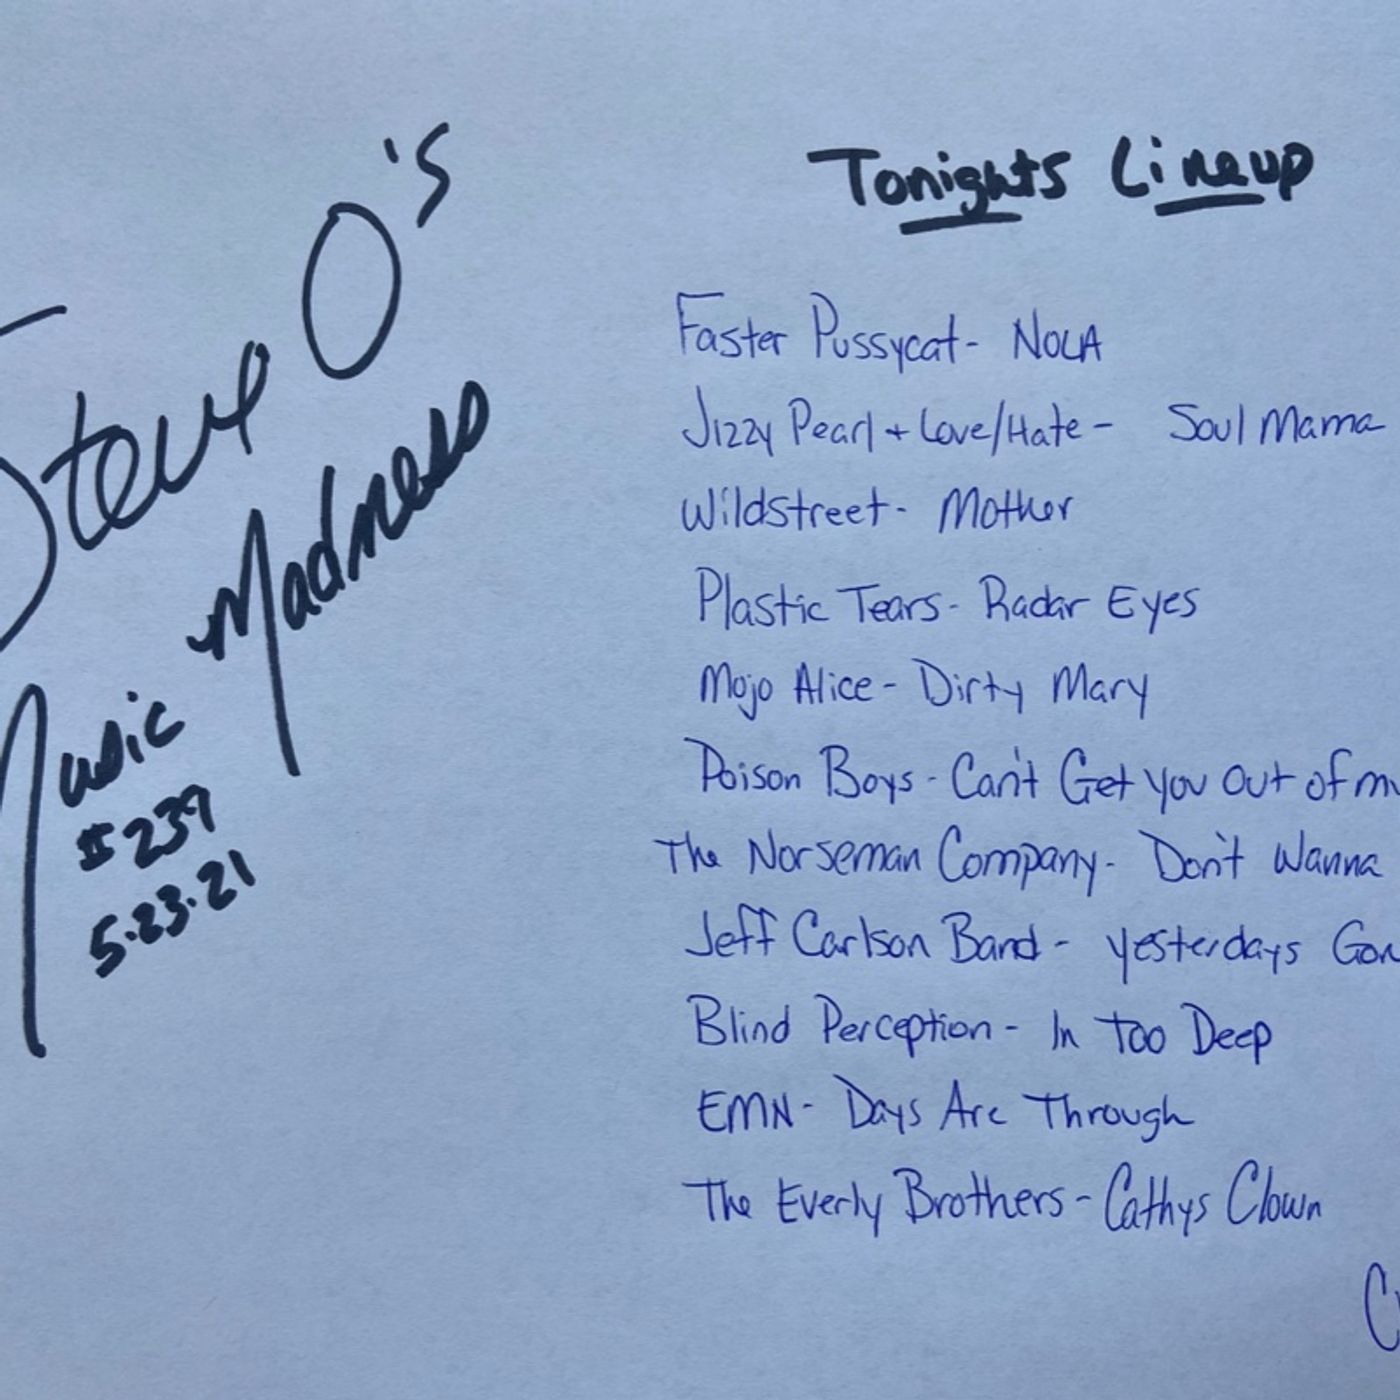 Steve O's
Music Madness
#239
5.23.21
Tonights Lineup
Faster Pussycat - NOLA
Jizzy Pearl + Love/Hate - Soul Mama
Wildstreet - Mother
Plastic Tears - Radar Eyes
Mojo Alice - Dirty Mary
Poison Boys - Can't Get You Out of
The Norseman Company - Don't Wanna
Jeff Carlson Band - Yesterdays
Blind Perception - In Too Deep
EMN - Days Are Through
The Everly Brothers - Cathys Clown